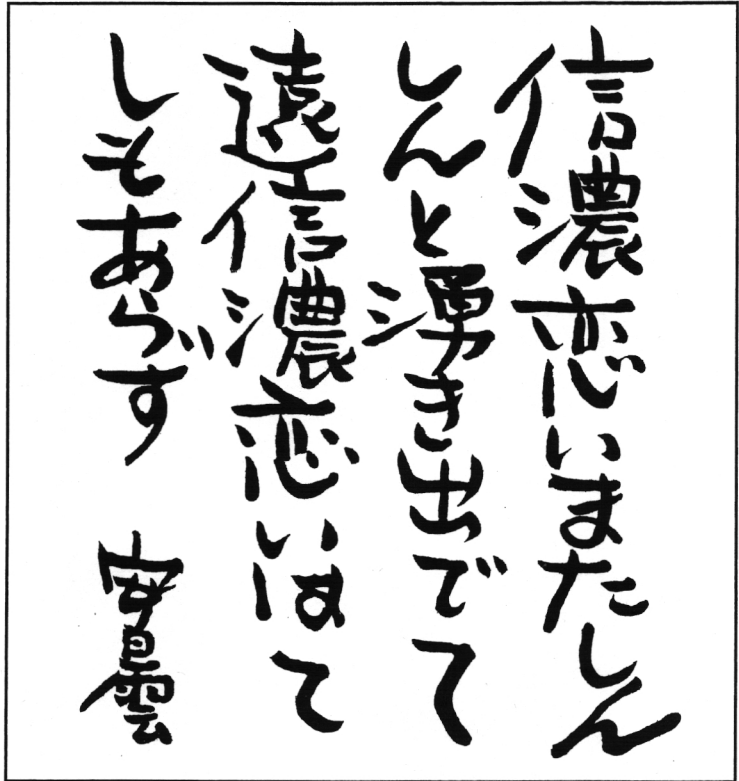 信濃恋いまたしん
しんと湧き出でて
遠信濃恋いはて
しもあらず 安曇